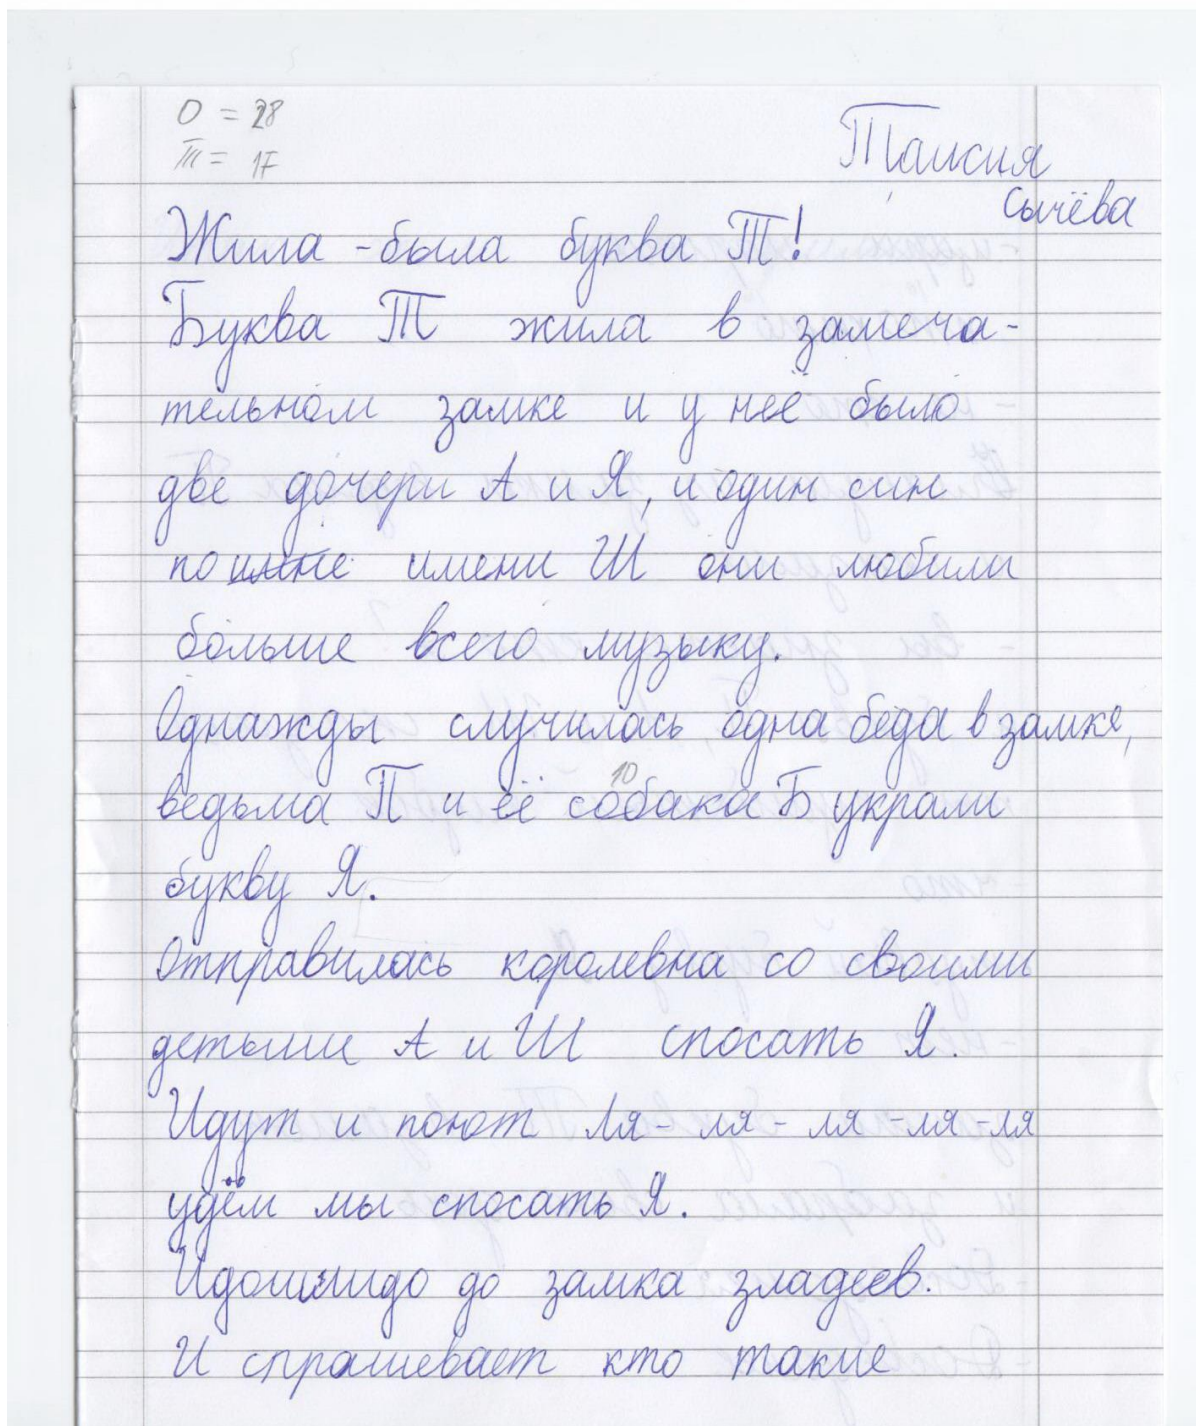 О = 28
Т = 17
Таисия
Сычёва
Жила-была буква Т!
Буква Т жила в замеча-
тельном замке и у неё было
две дочери А и Я, и один син
по имне имени Ш они любили
больше всего музыку.
Однажды случилась одна беда в замке,
ведьма П и её собака Б украли
10
букву Я.
Отправилась королевна со своими
детьми А и Ш спосать Я.
Идут и поют Ля-ля-ля-ля-ля
удём мы спосать Я.
до замка зладеев.
И спрашевает кто такие